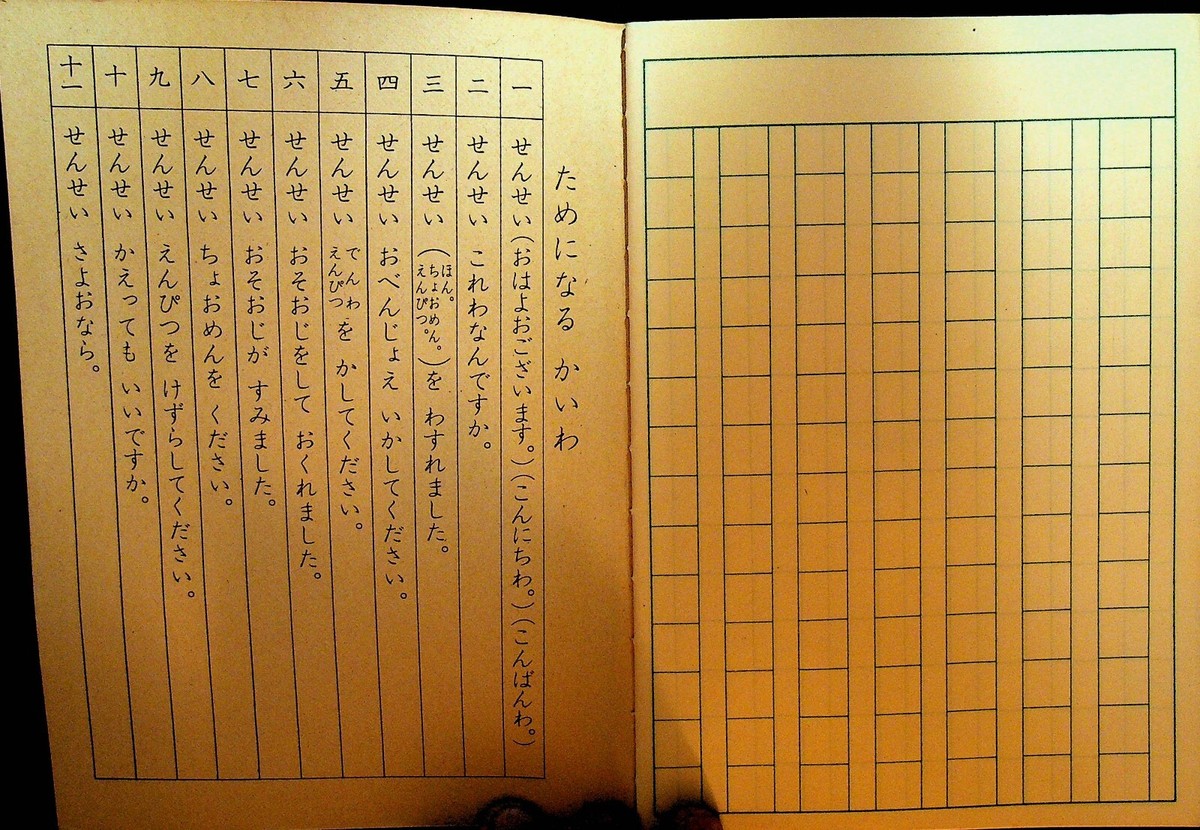 ためになる かいわ
一 せんせい(おはよおございます。)(こんにちわ。)(こんばんわ。)
二 せんせい これわなんですか。
三 せんせい (ほん。ちょおめん。えんぴつ。)を わすれました。
四 せんせい おべんじょえ いかしてください。
五 せんせい でんわ えんぴつ を かしてください。
六 せんせい おそおじをして おくれました。
七 せんせい おそおじが すみました。
八 せんせい ちょおめんを ください。
九 せんせい えんぴつを けずらしてください。
十 せんせい かえっても いいですか。
十一 せんせい さよおなら。